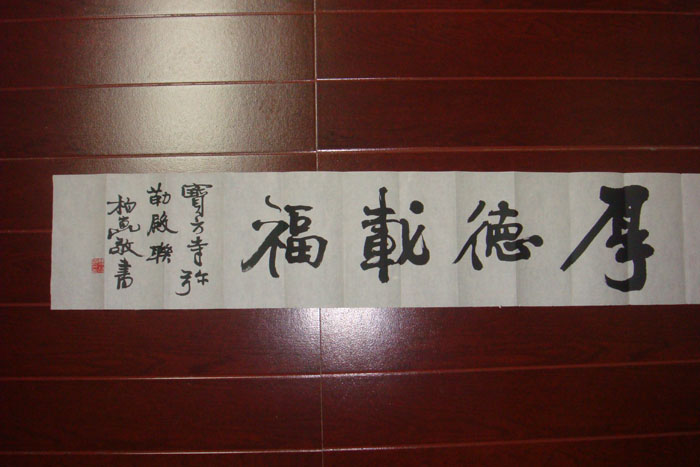 厚德載福
寶方寺弥
勒殿聯
柏嵐敬書